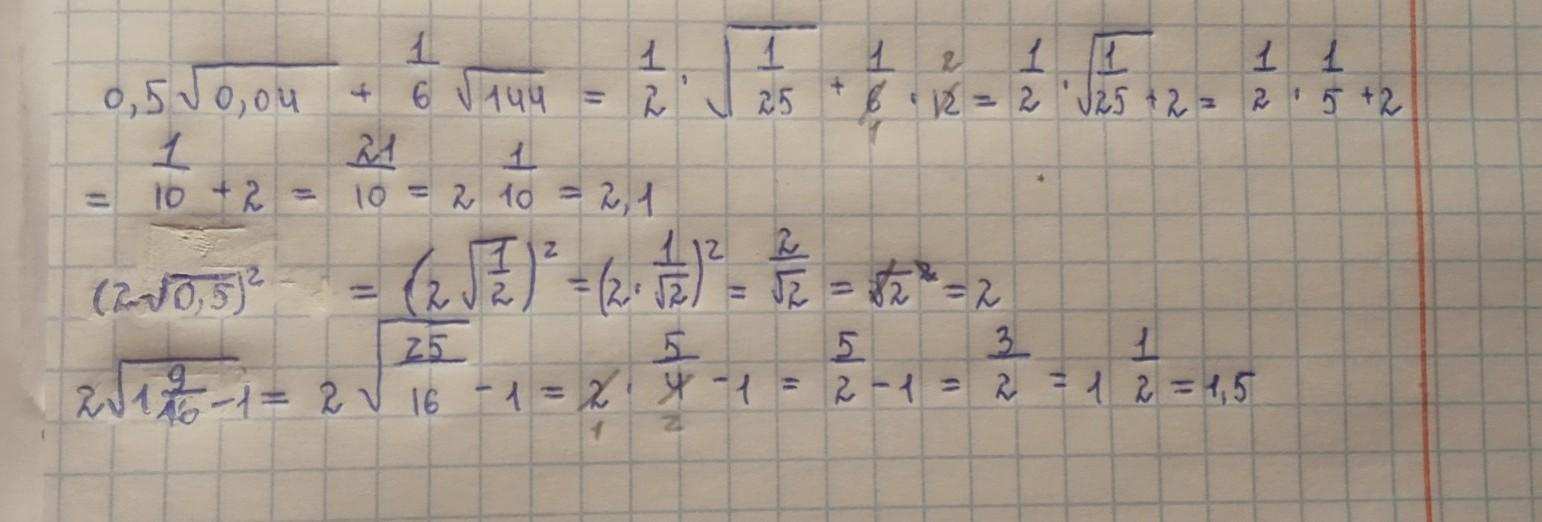 0,5√0,04 + 1/6 √144 = 1/2 · √1/25 + 1/6 · 12 2 1 = 1/2 · √1/25 + 2 = 1/2 · 1/5 + 2
= 1/10 + 2 = 21/10 = 2 1/10 = 2,1
(2√0,5)² = (2√1/2)² = (2 · 1/√2)² = 2/√2 = √2² = 2
2√1 9/16 - 1 = 2√25/16 - 1 = 2 · 5/4 - 1 = 5/2 - 1 = 3/2 = 1 1/2 = 1,5
1 2